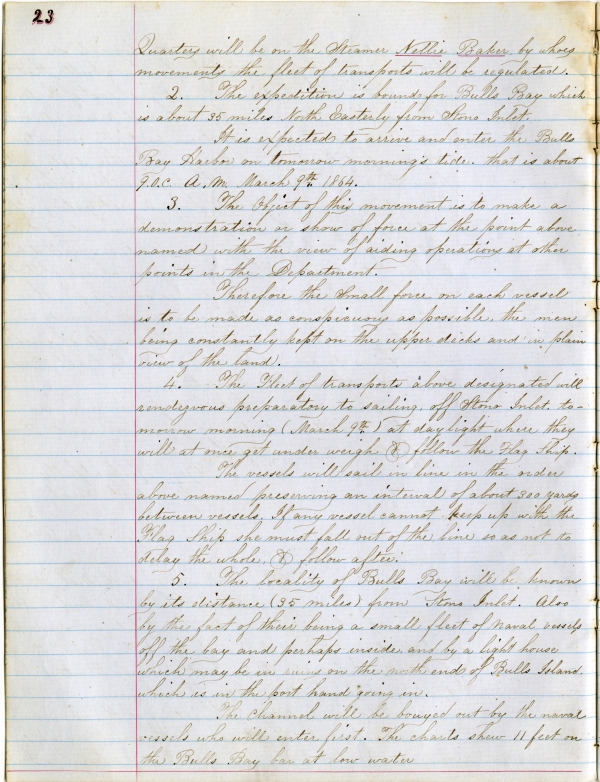 23
Quarters will be on the Steamer Nellie Baker by whoes
movements the fleet of transports will be regulated.
2. The expedition is bound for Bulls Bay which
is about 35 miles North Easterly from Stono Inlet.
It is expected to arrive and enter the Bulls
Bay Harbor on tomorrow morning's tide. that is about
9.O.C. A.M. March 9th 1864.
3. The Object of this movement is to make a
demonstration or show of force at the point above
named with the view of aiding operations at other
points in the Department.
Therefore the Small force on each vessel
is to be made as conspicuous as possible, the men
being constantly kept on the upper decks and in plain
view of the land.
4. The Fleet of transports above designated will
rendezvous preparatory to sailing, off Stono Inlet, to-
morrow morning (March 9th) at daylight where they
will at once get under weigh & follow the Flag Ship.
The vessels will sail in line in the order
above named preserving an interval of about 300 yards
between vessels. If any vessel cannot keep up with the
Flag Ship she must fall out of the line so as not to
delay the whole, & follow after.
5. The locality of Bulls Bay will be known
by its distance (35 miles) from Stono Inlet. Also
by the fact of their being a small fleet of naval vessels
off the bay and perhaps inside, and by a light house
which may be in ruins on the north end of Bulls Island.
which is in the port hand going in.
The channel will be bouyed out by the naval
vessels who will enter first. The charts shew 11 feet on
the Bulls Bay bar at low water